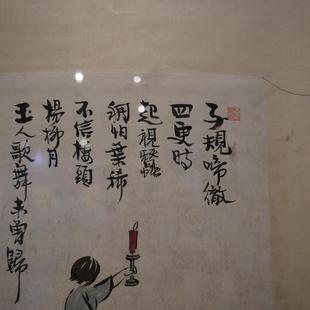 子規啼徹
四更時
起視蠶
稠怕葉稀
不信樓頭
楊柳月
玉人歌舞未曾歸